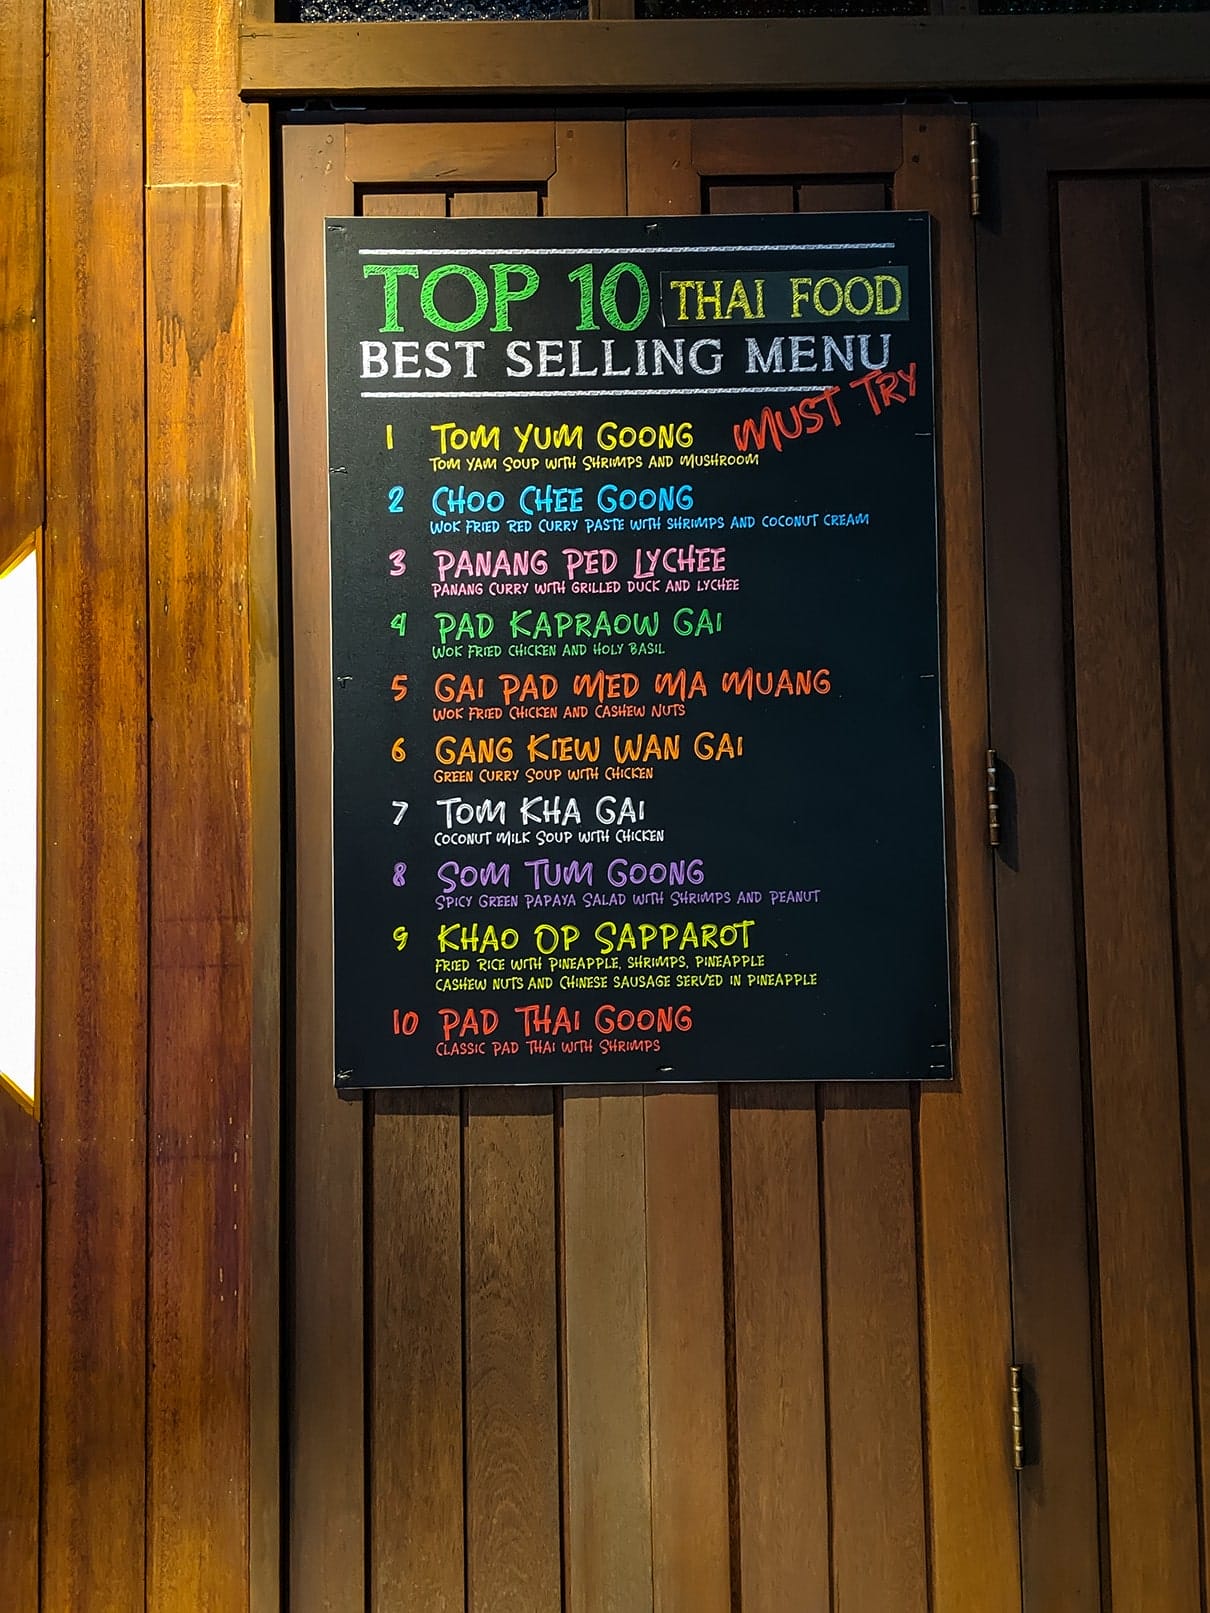 TOP 10 THAI FOOD
BEST SELLING MENU
MUST TRY
1 TOM YUM GOONG
TOM YAM SOUP WITH SHRIMPS AND MUSHROOM
2 CHOO CHEE GOONG
WOK FRIED RED CURRY PASTE WITH SHRIMPS AND COCONUT CREAM
3 PANANG PED LYCHEE
PANANG CURRY WITH GRILLED DUCK AND LYCHEE
4 PAD KAPRAOW GAI
WOK FRIED CHICKEN AND HOLY BASIL
5 GAI PAD MED MA MUANG
WOK FRIED CHICKEN AND CASHEW NUTS
6 GANG KIEW WAN GAI
GREEN CURRY SOUP WITH CHICKEN
7 TOM KHA GAI
COCONUT MILK SOUP WITH CHICKEN
8 SOM TUM GOONG
SPICY GREEN PAPAYA SALAD WITH SHRIMPS AND PEANUT
9 KHAO OP SAPPAROT
FRIED RICE WITH PINEAPPLE, SHRIMPS, PINEAPPLE
CASHEW NUTS AND CHINESE SAUSAGE SERVED IN PINEAPPLE
10 PAD THAI GOONG
CLASSIC PAD THAI WITH SHRIMPS